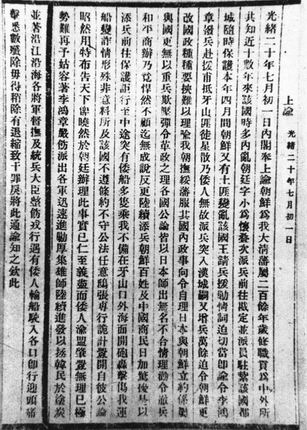 上諭 光緒二十年七月初一日
光緒二十年七月初一日內閣奉上諭朝鮮為我大清藩屬二百餘年歲修職貢為中外所
共知近十數年來該國時多內亂朝廷字小為懷疊次派兵前往戡定並派員駐紮該國都
城隨時保護本年四月間朝鮮又有土匪變亂該國王請兵援勦情詞迫切當即諭令李鴻
章撥兵赴援甫抵牙山匪徒星散乃倭人無故派兵突入漢城嗣又增兵萬餘迫令朝鮮更
改國政種種要挾難以理喻我朝撫綏藩服其國內政事向令自理日本與朝鮮立約係屬
與國更無以重兵欺壓強令革政之理各國公論皆以日本師出無名不合情理勸令撤兵
和平商辦乃竟悍然不顧迄無成說反更陸續添兵朝鮮百姓及中國商民日加驚擾是以
添兵前往保護詎行至中途突有倭船多隻乘我不備在牙山口外海面開礮轟擊傷我運
船變詐情形殊非意料所及該國不遵條約不守公法任意鴟張專行詭計釁開自彼公論
昭然用特布告天下俾曉然於朝廷辦理此事實已仁至義盡而倭人渝盟肇釁無理已極
勢難再予姑容著李鴻章嚴飭派出各軍迅速進勦厚集雄師陸續進發以拯韓民於塗炭
並著沿江沿海各將軍督撫及統兵大臣整飭戎行遇有倭人輪船駛入各口即行迎頭痛
擊悉數殲除毋得稍有退縮致干罪戾將此通諭知之欽此